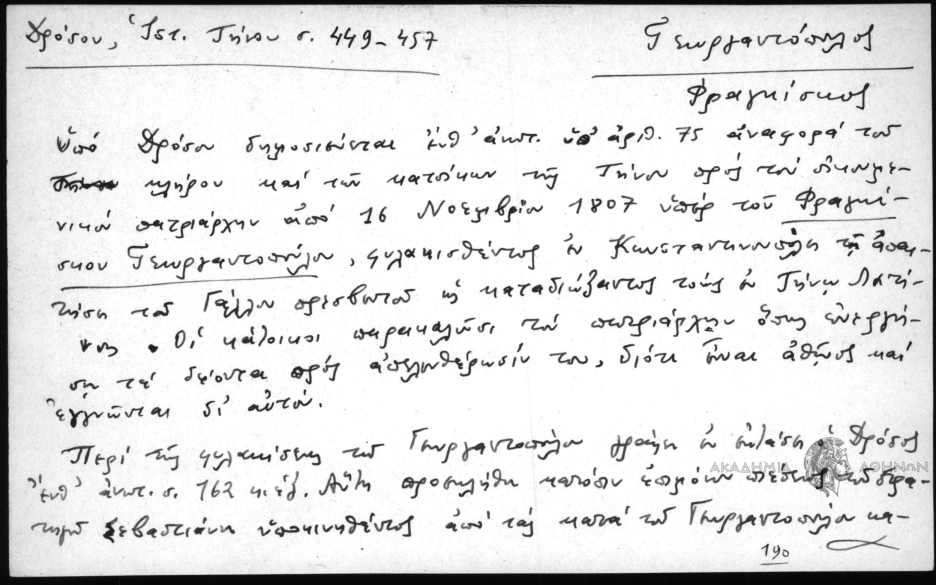 Δρόσου, Ἱστ. Τήνου σ. 449-457
Γεωργαντόπουλος
Φραγκίσκος
Ὑπό Δρόσου δημοσιεύεται ἔνθ' ἀνωτ. ὑπ' ἀριθ. 75 ἀναφορά τοῦ
κλήρου καί τῶν κατοίκων τῆς Τήνου πρός τόν οἰκουμε-
νικόν πατριάρχην ἀπό 16 Νοεμβρίου 1807 ὑπέρ τοῦ Φραγκί-
σκου Γεωργαντοπούλου, φυλακισθέντος ἐν Κωνσταντινουπόλει τῇ ἀπαι-
τήσει τοῦ Γάλλου πρεσβευτοῦ ὡς καταδιώξαντος τούς ἐν Τήνῳ Λατί-
νους. Οἱ κάτοικοι παρακαλοῦσι τόν πατριάρχην ὅπως ἐνεργή-
σῃ τά δέοντα πρός ἀπελευθέρωσίν του, διότι εἶναι ἀθῶος καί
ἐγγυῶνται δι' αὐτόν.
Περί τῆς φυλακίσεως τοῦ Γεωργαντοπούλου γράφει ἐν ἐκτάσει ὁ Δρόσος
ἔνθ' ἀνωτ. σ. 162 κ.ἑξ. Αὕτη προεκλήθη κατόπιν τοῦ στρα-
τηγοῦ Σεβαστιάνη ὑποκινηθέντος ἀπό τάς κατά τοῦ Γεωργαντοπούλου κα-
190
ΑΚΑΔΗΜΙΑ ΑΘΗΝΩΝ